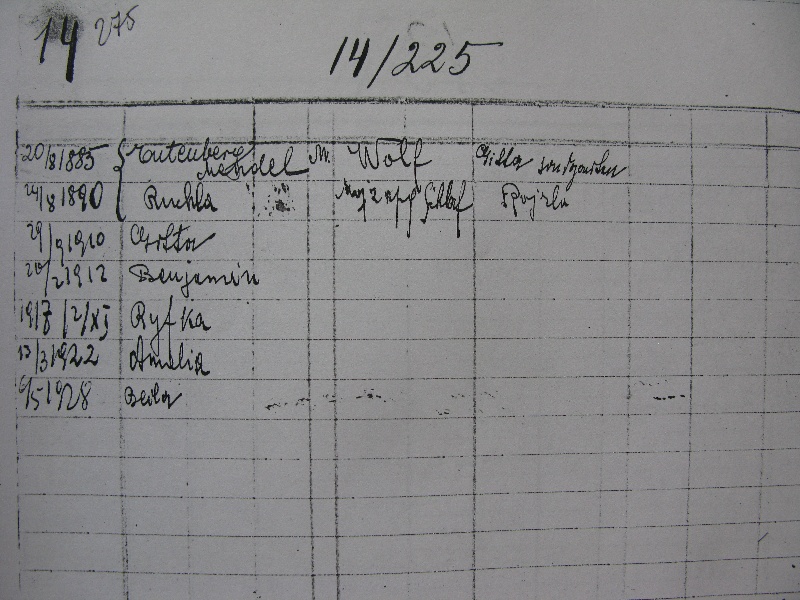 14 275
14/225
20/8 1885 Rutenberg Mendel M. Wolf Gitla
24/8 1890 Ruchla Rojzla
29/9 1910 Gitta
20/2 1912 Benjamin
1917 12/XI Ryfka
13/3 1922 Amalia
9/5 1928 Beila